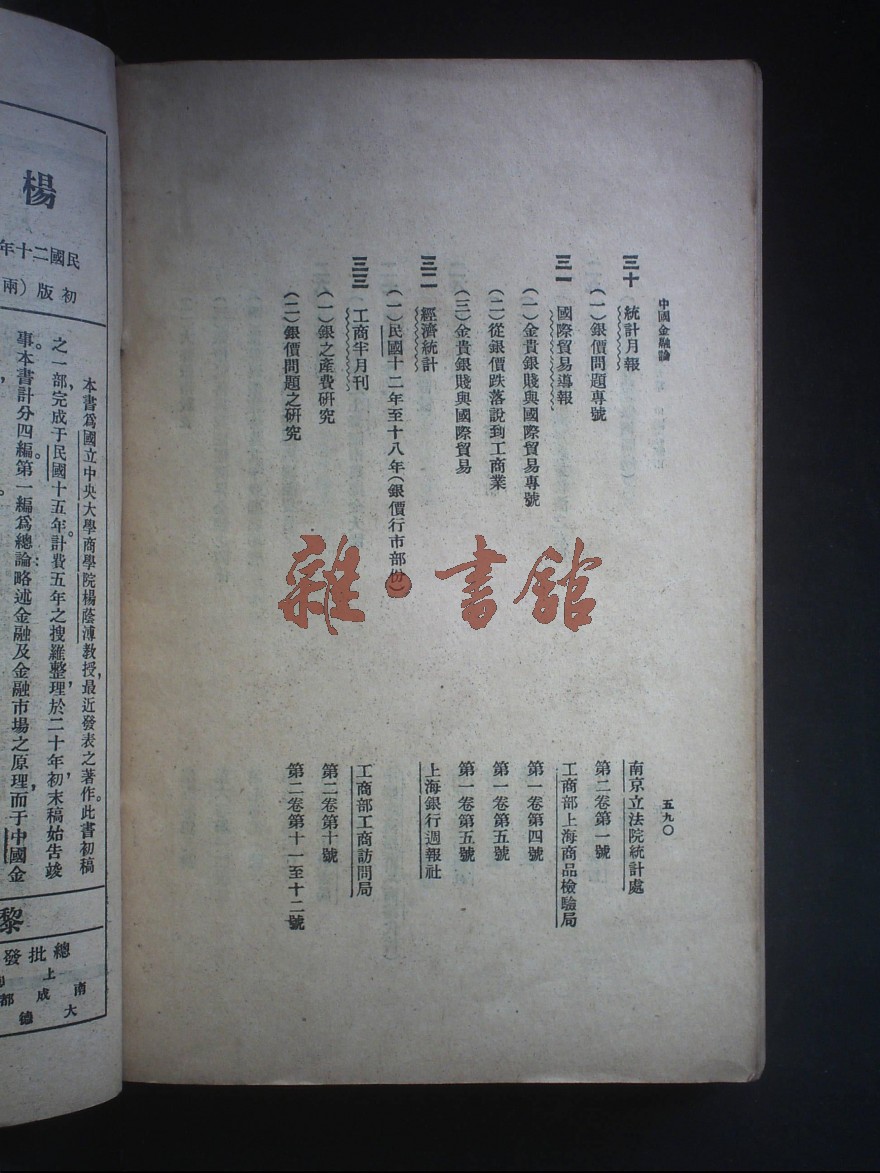 中國金融論
五九〇
三十 統計月報
南京立法院統計處
(一)銀價問題專號
第二卷第一號
三一 國際貿易導報
工商部上海商品檢驗局
(一)金貴銀賤與國際貿易專號
第一卷第四號
(二)從銀價跌落說到工商業
第一卷第五號
(三)金貴銀賤與國際貿易
第一卷第五號
三二 經濟統計
上海銀行週報社
(一)民國十二年至十八年(銀價行市部份)
三三 工商半月刊
工商部工商訪問局
(一)銀之產費研究
第二卷第十號
(二)銀價問題之研究
第二卷第十一至十二號
雜·書館
楊
民國二十年
初版(兩
本書爲國立中央大學商學院楊蔭溥教授最近發表之著作。此書初稿
之一部,完成于民國十五年。計費五年之搜羅整理,於二十年初,末稿始告竣
事。本書計分四編:第一編爲總論,略述金融及金融市場之原理,而于中國金
黎
總批發
上
南
成
都
大
德